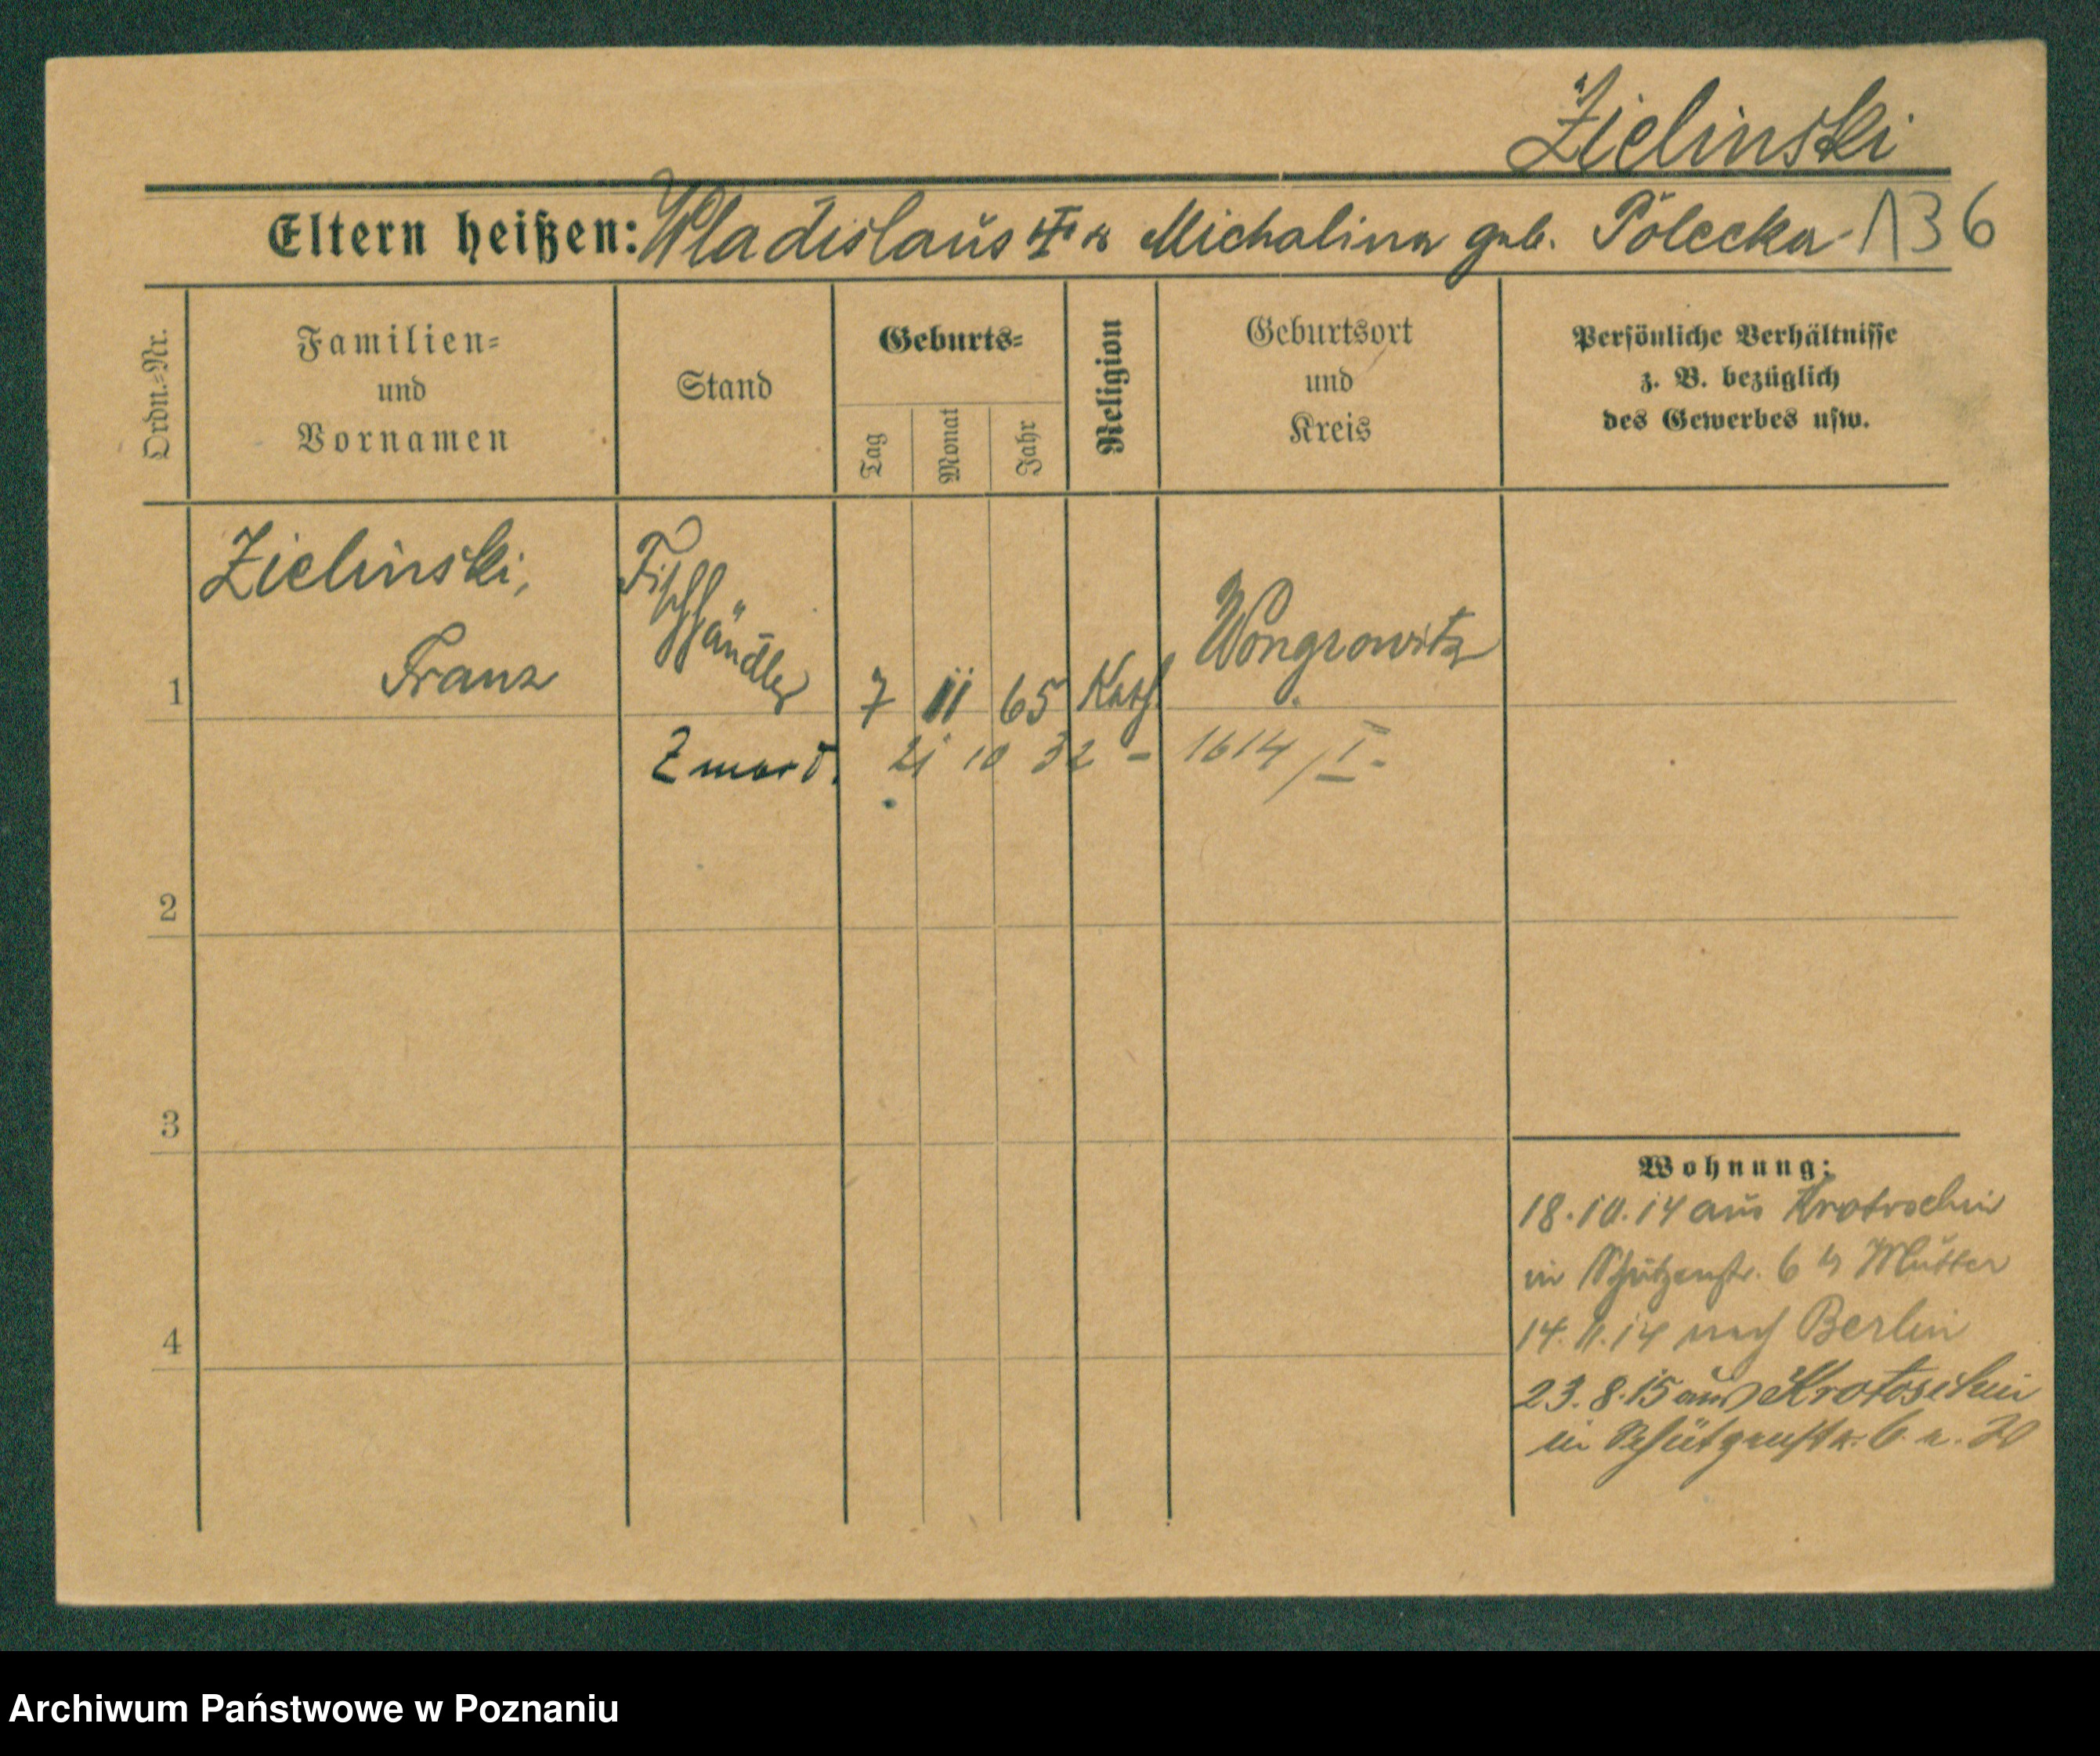 Zielinski
Eltern heißen: Wladislaus u Michalina geb. Polecka 136
Ordn.=Nr.
Familien=
und
Vornamen
Stand
Geburts=
Tag
Monat
Jahr
Religion
Geburtsort
und
Kreis
Persönliche Verhältnisse
z. B. bezüglich
des Gewerbes usw.
1
Zielinski,
Franz
Fisch
händler
7 11 65 Kath.
Wongrowitz
Zmarł. 21 10 32 - 1614/I-
2
3
4
Wohnung:
18.10.14 aus Krotoschin
in Schützenstr. 6 Mutter
14.11.14 nach Berlin
23.8.15 aus Krotoschin
in Schützenstr. 6
Archiwum Państwowe w Poznaniu